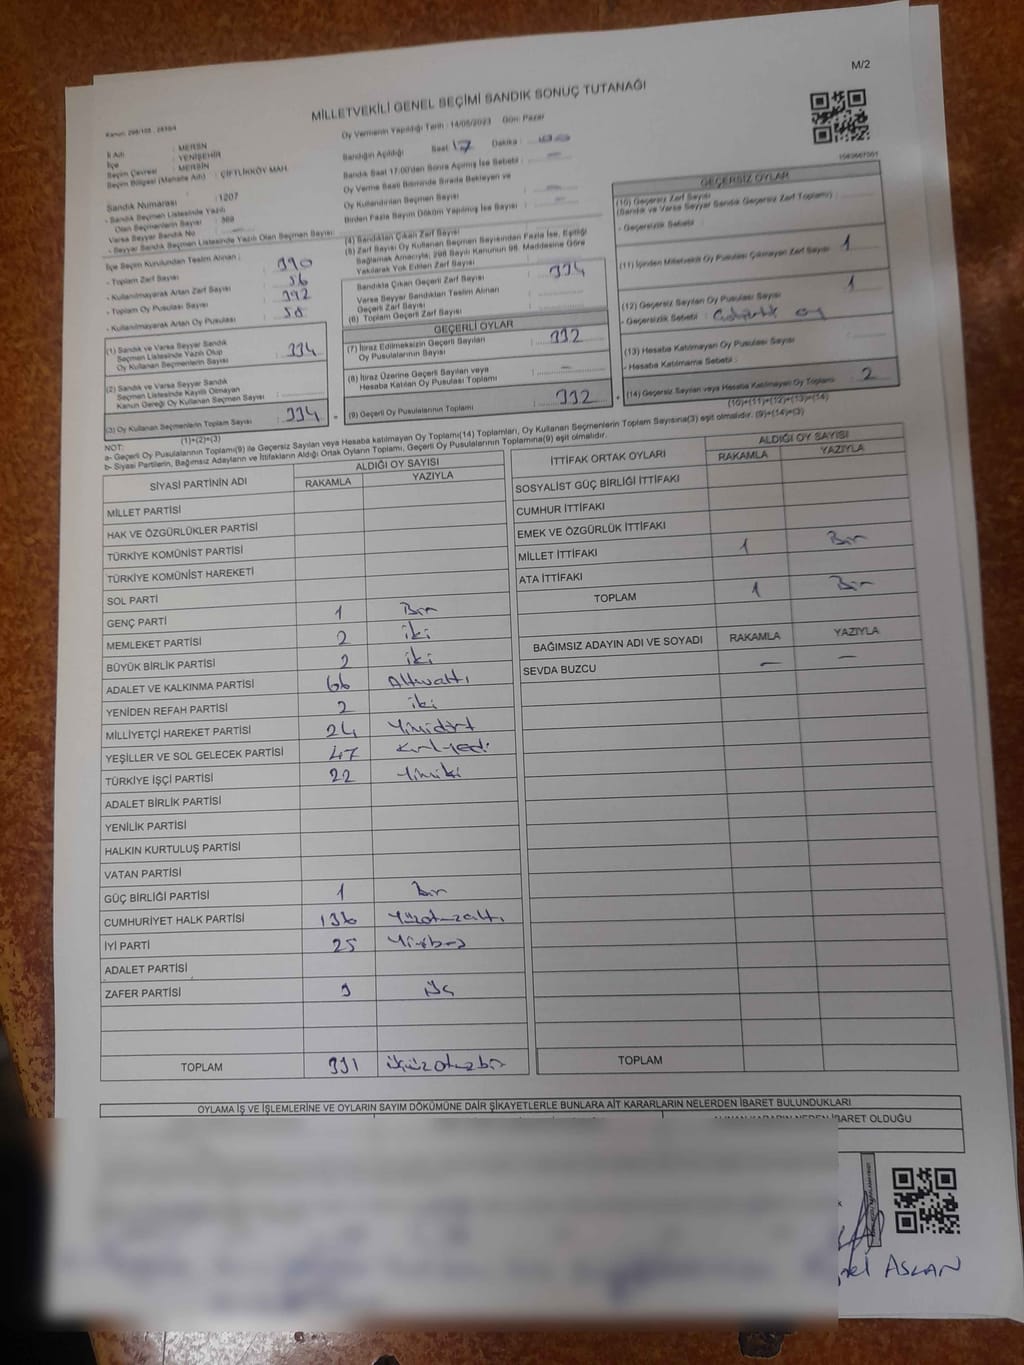 M/2
MİLLETVEKİLİ GENEL SEÇİMİ SANDIK SONUÇ TUTANAĞI
Kanun: 298/105 , 2839/4
Oy Vermenin Yapıldığı Tarih : 14/05/2023 Gün: Pazar
İl Adı : MERSİN
İlçe : YENİŞEHİR
Seçim Çevresi : MERSİN
Seçim Bölgesi (Mahalle Adı) : ÇİFTLİKKÖY MAH.
Sandık Numarası : 1207
- Sandık Seçmen Listesinde Yazılı
Olan Seçmenlerin Sayısı : 389
Varsa Seyyar Sandık No :
- Seyyar Sandık Seçmen Listesinde Yazılı Olan Seçmen Sayısı :
Sandığın Açıldığı Saat : 17 Dakika : 00
Sandık Saat 17:00'den Sonra Açılmış İse Sebebi : —
Oy Verme Saati Bitiminde Sırada Bekleyen ve
Oy Kullandırılan Seçmen Sayısı : —
Birden Fazla Sayım Döküm Yapılmış İse Sayısı : —
İlçe Seçim Kurulundan Teslim Alınan :
- Toplam Zarf Sayısı : 390
- Kullanılmayarak Artan Zarf Sayısı : 56
- Toplam Oy Pusulası Sayısı : 392
- Kullanılmayarak Artan Oy Pusulası : 58
(1) Sandık ve Varsa Seyyar Sandık
Seçmen Listesinde Yazılı Olup
Oy Kullanan Seçmenlerin Sayısı : 334
(2) Sandık ve Varsa Seyyar Sandık
Seçmen Listesinde Kayıtlı Olmayan
Kanun Gereği Oy Kullanan Seçmen Sayısı :
(3) Oy Kullanan Seçmenlerin Toplam Sayısı : 334
(1)+(2)=(3)
(4) Sandıktan Çıkan Zarf Sayısı
(5) Zarf Sayısı Oy Kullanan Seçmen Sayısından Fazla İse, Eşitliği
Sağlamak Amacıyla; 298 Sayılı Kanunun 98. Maddesine Göre
Yakılarak Yok Edilen Zarf Sayısı
Sandıkta Çıkan Geçerli Zarf Sayısı : 334
Varsa Seyyar Sandıktan Teslim Alınan
Geçerli Zarf Sayısı :
(6) Toplam Geçerli Zarf Sayısı :
GEÇERLİ OYLAR
(7) İtiraz Edilmeksizin Geçerli Sayılan
Oy Pusulalarının Sayısı : 332
(8) İtiraz Üzerine Geçerli Sayılan veya
Hesaba Katılan Oy Pusulası Toplamı : —
(9) Geçerli Oy Pusulalarının Toplamı : 332
GEÇERSİZ OYLAR
(10) Geçersiz Zarf Sayısı
(Sandık ve Varsa Seyyar Sandık Geçersiz Zarf Toplamı) :
- Geçersizlik Sebebi :
(11) İçinden Milletvekili Oy Pusulası Çıkmayan Zarf Sayısı : 1
(12) Geçersiz Sayılan Oy Pusulası Sayısı : 1
- Geçersizlik Sebebi : oy
(13) Hesaba Katılmayan Oy Pusulası Sayısı :
- Hesaba Katılmama Sebebi :
(14) Geçersiz Sayılan veya Hesaba Katılmayan Oy Toplamı : 2
(10)+(11)+(12)+(13)=(14)
NOT:
a- Geçerli Oy Pusulalarının Toplamı(9) ile Geçersiz Sayılan veya Hesaba katılmayan Oy Toplamı(14) Toplamları, Oy Kullanan Seçmenlerin Toplam Sayısına(3) eşit olmalıdır. (9)+(14)=(3)
b- Siyasi Partilerin, Bağımsız Adayların ve İttifakların Aldığı Ortak Oyların Toplamı, Geçerli Oy Pusulalarının Toplamına(9) eşit olmalıdır.
SİYASİ PARTİNİN ADI ALDIĞI OY SAYISI
RAKAMLA YAZIYLA
MİLLET PARTİSİ
HAK VE ÖZGÜRLÜKLER PARTİSİ
TÜRKİYE KOMÜNİST PARTİSİ
TÜRKİYE KOMÜNİST HAREKETİ
SOL PARTİ
GENÇ PARTİ 1 Bir
MEMLEKET PARTİSİ 2 iki
BÜYÜK BİRLİK PARTİSİ 2 iki
ADALET VE KALKINMA PARTİSİ 66 Altmışaltı
YENİDEN REFAH PARTİSİ 2 iki
MİLLİYETÇİ HAREKET PARTİSİ 24 Yirmidört
YEŞİLLER VE SOL GELECEK PARTİSİ 47 Kırkyedi
TÜRKİYE İŞÇİ PARTİSİ 22 Yirmiiki
ADALET BİRLİK PARTİSİ
YENİLİK PARTİSİ
HALKIN KURTULUŞ PARTİSİ
VATAN PARTİSİ
GÜÇ BİRLİĞİ PARTİSİ 1 bir
CUMHURİYET HALK PARTİSİ 136 Yüzotuzaltı
İYİ PARTİ 25 Yirmibeş
ADALET PARTİSİ
ZAFER PARTİSİ 3 üç
TOPLAM 331 üçyüzotuzbir
İTTİFAK ORTAK OYLARI ALDIĞI OY SAYISI
RAKAMLA YAZIYLA
SOSYALİST GÜÇ BİRLİĞİ İTTİFAKI
CUMHUR İTTİFAKI
EMEK VE ÖZGÜRLÜK İTTİFAKI
MİLLET İTTİFAKI 1 Bir
ATA İTTİFAKI
TOPLAM 1 Bir
BAĞIMSIZ ADAYIN ADI VE SOYADI RAKAMLA YAZIYLA
SEVDA BUZCU — —
TOPLAM
OYLAMA İŞ VE İŞLEMLERİNE VE OYLARIN SAYIM DÖKÜMÜNE DAİR ŞİKAYETLERLE BUNLARA AİT KARARLARIN NELERDEN İBARET BULUNDUKLARI
ALINAN KARARIN NEDEN İBARET OLDUĞU
ASLAN